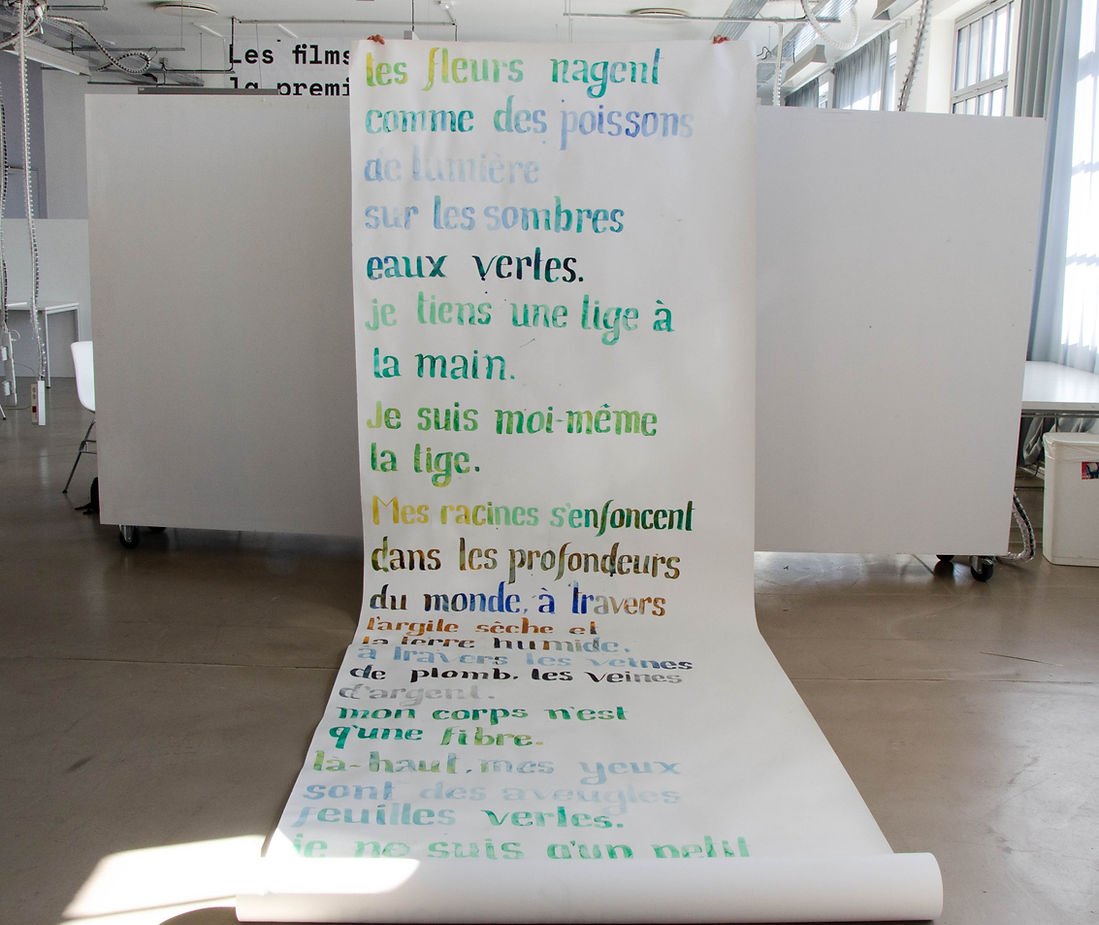 Les films
la premi
les fleurs nagent
comme des poissons
de lumière
sur les sombres
eaux vertes.
je tiens une tige à
la main.
Je suis moi-même
la tige.
Mes racines s'enfoncent
dans les profondeurs
du monde, à travers
l'argile sèche et
la terre humide,
à travers les veines
de plomb, les veines
d'argent.
mon corps n'est
q'une fibre.
là-haut, mes yeux
sont des aveugles
feuilles vertes.
je ne suis q'un petit